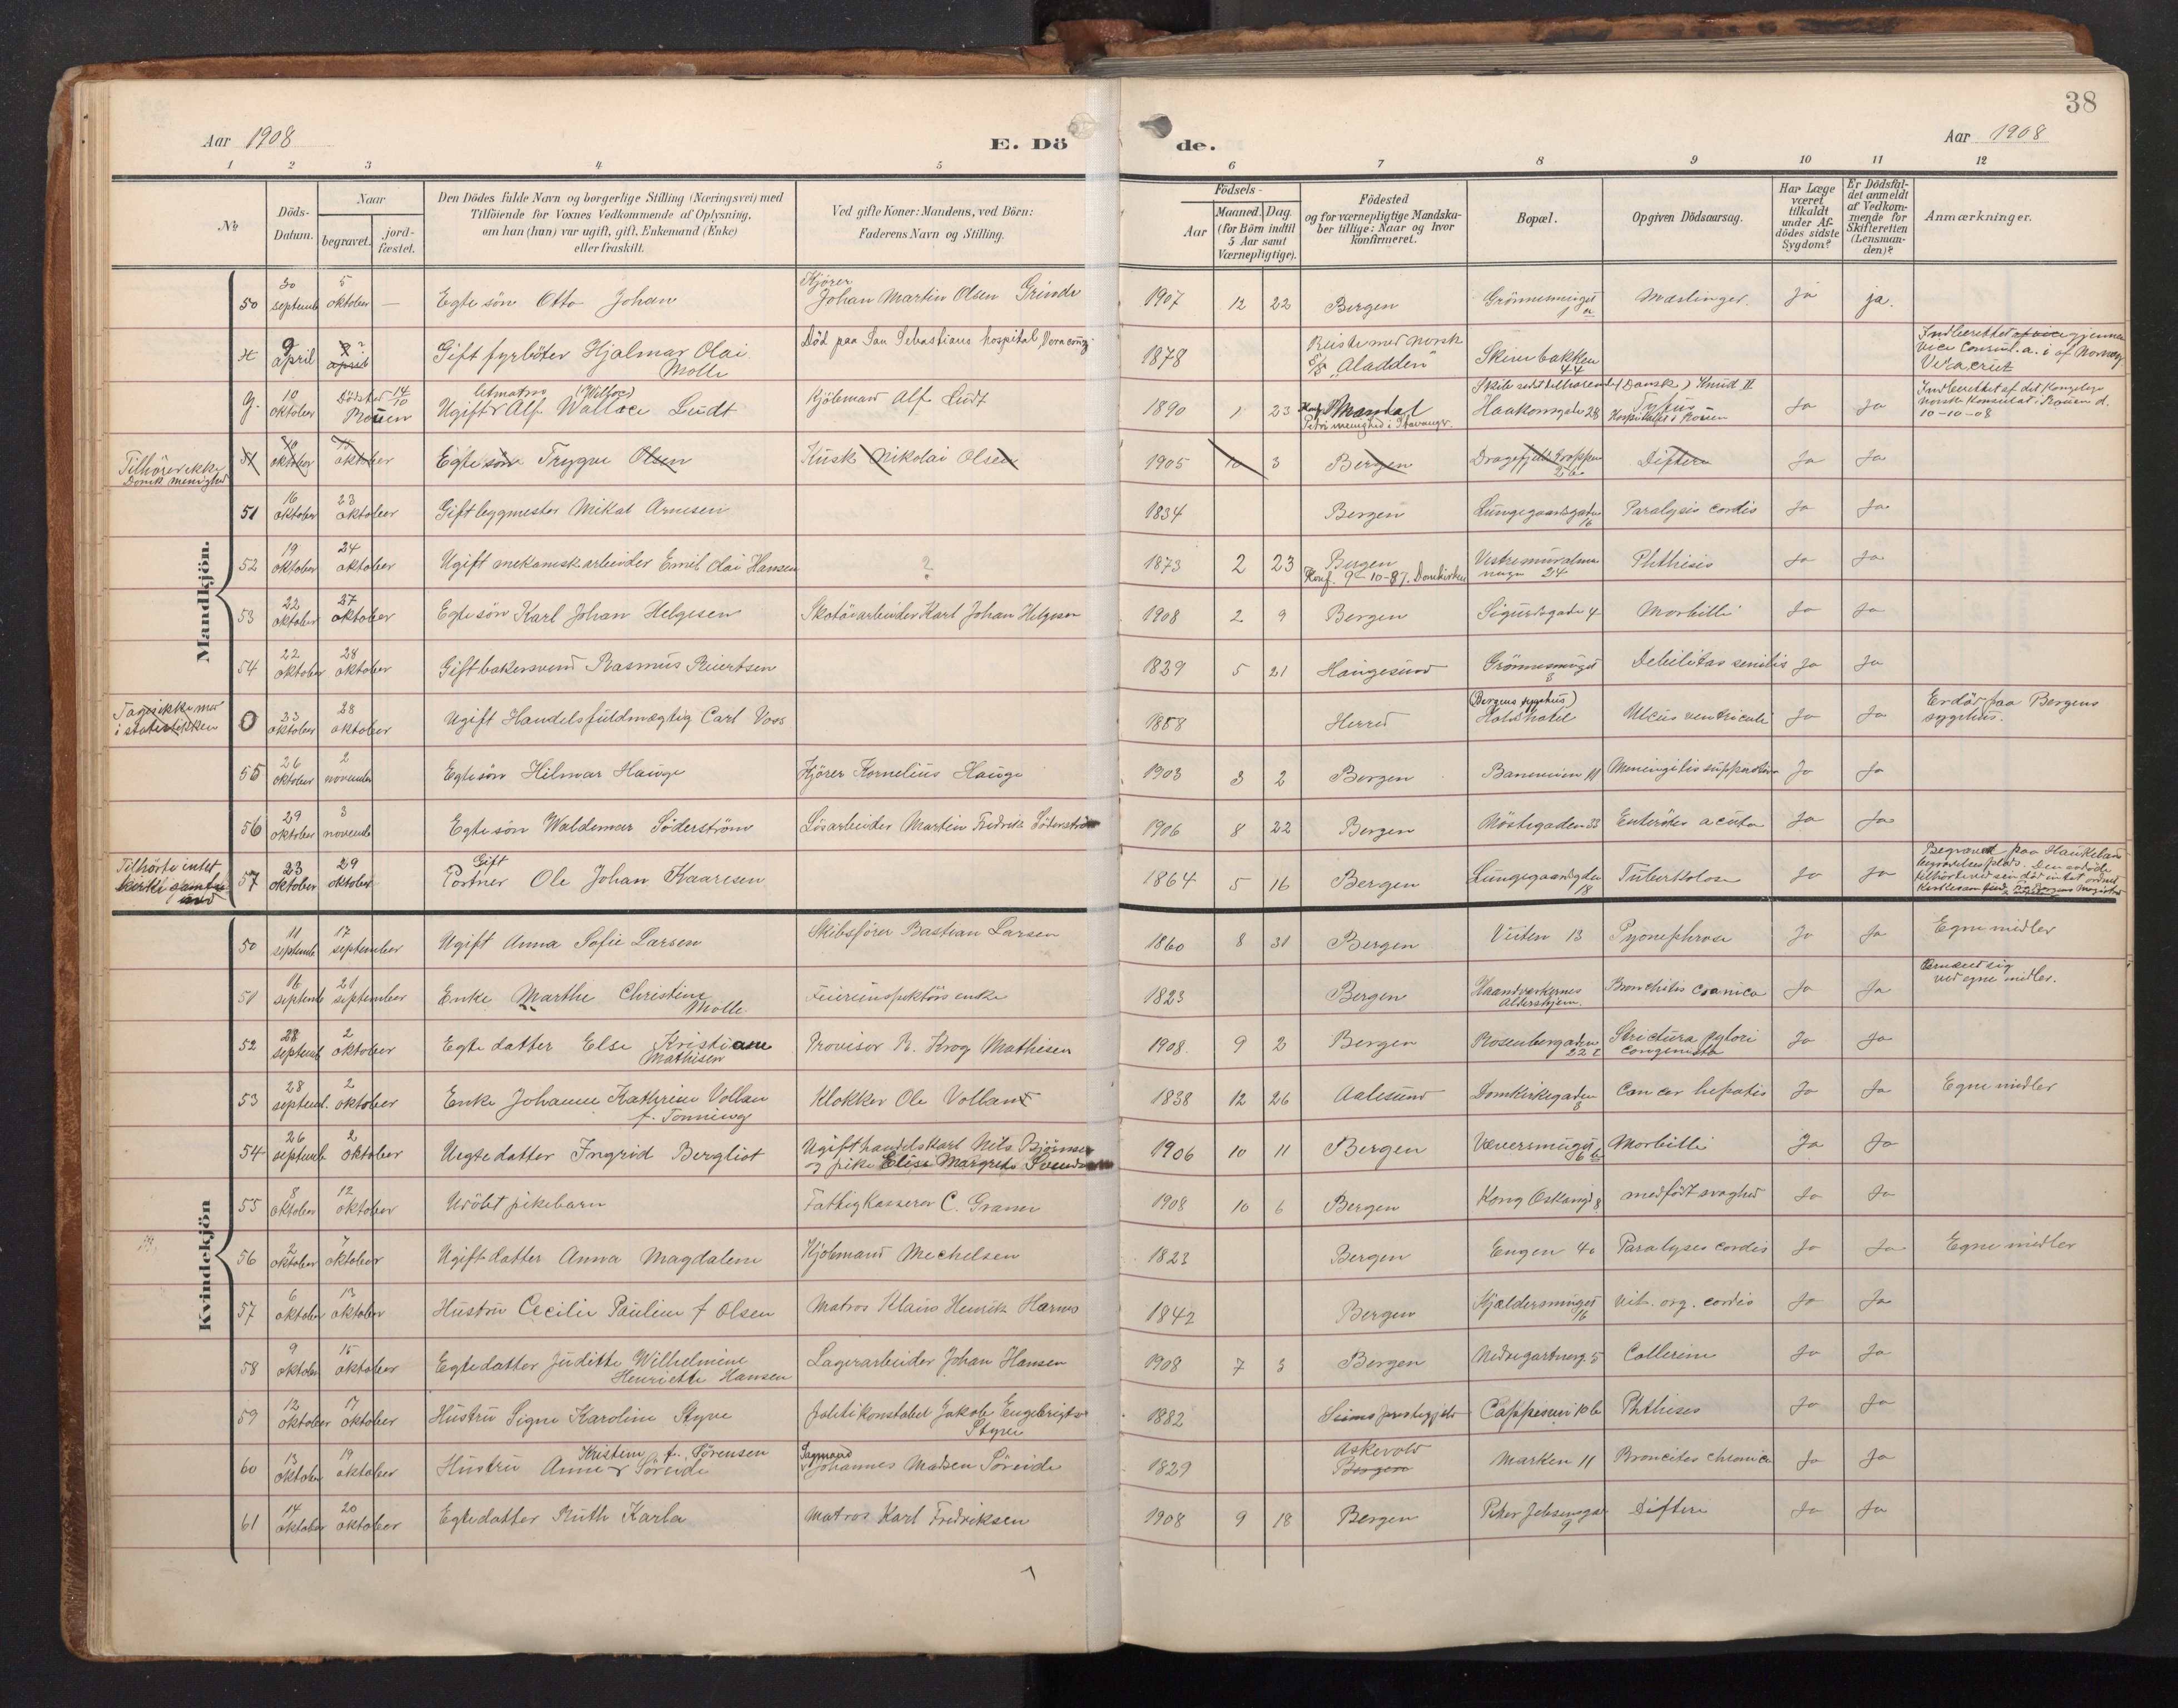 38
Aar 1908
E. Dö
de.
Aar 1908
1 2 3 4 5 6 7 8 9 10 11 12
No
Döds-Datum.
Naar
begravet.
jord-fæstet.
Den Dödes fulde Navn og borgerlige Stilling (Næringsvei) med
Tilföiende for Voxnes Vedkommende af Oplysning,
om han (hun) var ugift, gift, Enkemand (Enke)
eller fraskilt.
Ved gifte Koner: Mandens, ved Börn:
Faderens Navn og Stilling.
Födsels-
Aar
Maaned. Dag.
(for Börn indtil
5 Aar samt
Værnepligtige).
Födested
og for værnepligtige Mandska-
ber tillige: Naar og hvor
konfirmeret.
Bopæl.
Opgiven Dödsaarsag.
Har Læge
været
tilkaldt
under Af-
dödes sidste
Sygdom?
Er Dödsfal-
det anmeldt
af Vedkom-
mende for
Skifteretten
(Lensman-
den)?
Anmærkninger.
Mandkjön.
50 30 septemb 5 oktober — Egte sön Otto Johan Kjörer Johan Martin Olsen Grinde 1907 12 22 Bergen Grönnesmuget Mæslinger. ja ja.
9 april april Gift fyrböter Hjalmar Olai Molle Död paa San Sebastians hospital Vera cruz 1878 Reiste med norsk S/S "Aladden" Skivebakken 44 Vera cruz
g. 10 oktober Dödsted Rouen 14/10 Ugift letmatros Alf Wallace Lüdt Kjöbmand Alf Lüdt 1890 1 23 Mandal Petri menighed i Stavanger. Haakonsgaden 28 Tyfus Hospitalet i Rouen Ja Ja Indberettet af det Kongelige norske Konsulat i Rouen d. 10-10-08
Tilhörer ikke Domk. menighed 51 10 oktober 15 oktober Egte sön Trygve Olsen Kusk Nikolai Olsen 1905 10 3 Bergen Difteri Ja Ja
51 16 oktober 23 oktober Gift bygmester Mikal Arnesen 1834 Bergen Lungegaardsgaden 16 Paralysis cordis Ja Ja
52 19 oktober 24 oktober Ugift mekanisk arbeider Emil Olai Hansen ? 1873 2 23 Bergen Konf. 9-10-87. Domkirken 24 Phthisis Ja Ja
53 22 oktober 27 oktober Egte sön Karl Johan Helgesen Skotöiarbeider Karl Johan Helgesen 1908 2 9 Bergen Sigurdsgade 4 Morbilli Ja Ja
54 22 oktober 28 oktober Gift bakersvend Rasmus Reiertsen 1829 5 21 Haugesund Grönnesmuget 3 Debilitas senilis Ja Ja
Tages ikke med i statistikken 0 23 oktober 28 oktober Ugift Handelsfuldmægtig Carl Voss 1858 Herred (Bergens sygehus) Holdthotel Ulcus ventriculi Ja Ja Er död paa Bergens sygehus.
55 26 oktober 2 november Egte sön Hilmar Hauge Kjörer Kornelius Hauge 1903 3 2 Bergen Baneveien 11 Meningitis suppurativa Ja Ja
56 29 oktober 3 novemb Egte sön Waldemar Söderström Lösarbeider Martin Fredrik Söderström 1906 8 22 Bergen Nöstegaden 33 Enteritis acuta Ja Ja
Tilhörte intet kirkesamfund 57 23 oktober 29 oktober Gift Portner Ole Johan Kaaresen 1864 5 16 Bergen Lungegaardsgaden 18 Tuberkolose Ja Ja Begravet paa Haukeland begravelsesplads. Den afdöde tilhörte ved sin död intet ordnet Kirkesamfund
Kvindekjön
50 11 septemb 17 september Ugift Anna Sofie Larsen Skibsförer Bastian Larsen 1860 8 31 Bergen Veiten 13 Pyonephrose Ja Ja Egne midler
51 16 septemb 21 september Enke Marthe Christine Molle Feierinspektörs enke 1823 Bergen Haandverkernes Aldershjem. Bronchitis cronica Ja Ja Ernæret sig ved egne midler.
52 28 septemb 2 oktober Egte datter Else Kristiane Mathisen Provisor R. Krog Mathisen 1908. 9 2 Bergen Rosenbergsgaden 22 Strictura pylori congenita Ja Ja
53 28 septemb. 2 oktober Enke Johanne Kathrine Vollan f. Tonning Klokker Ole Vollan 1838 12 26 Aalesund Domkirkegaden 3 Cancer hepatis Ja Ja Egne midler
54 26 septemb 2 oktober Uegte datter Ingrid Bergliot Ugift handelskarl Nils Björnsen og pike Elise Margrete Svendsen 1906 10 11 Bergen Væversmuget 6 b Morbilli Ja Ja
55 8 oktober 12 oktober Udöbt pikebarn Fattigkasserer C. Graner 1908 10 6 Bergen Kong Oskarsgd 8 medfödt svaghed Ja Ja
56 2 oktober 7 oktober Ugift datter Anna Magdalene Kjöbmand Mechelsen 1823 Bergen Engen 40 Paralyses cordis Ja Ja Egne midler
57 6 oktober 13 oktober Hustru Cecilie Pauline f Olsen Matros Klaus Henrik Harms 1842 Bergen Kjeldersmuget 16 vit. org. cordis Ja Ja
58 9 oktober 15 oktober Egte datter Juditte Wilhelmine Henriette Hansen Lagerarbeider Johan Hansen 1908 7 3 Bergen Nedregartnerg. 5 Collerine Ja Ja
59 12 oktober 17 oktober Hustru Signe Karoline Styve Politikonstabel Jakob Engebrigtsen Styve 1882 prestegjeld Cappesvei 10 b Phthises Ja Ja
60 13 oktober 19 oktober Hustru Anne Kristine f. Sörensen Söreide Johannes Madsen Söreide 1829 Askevold Bergen Marken 11 Broncites chronica Ja Ja
61 14 oktober 20 oktober Egte datter Ruth Karla Matros Karl Fredriksen 1908 9 18 Bergen Peter Jebsensgd 9 Difteri Ja Ja